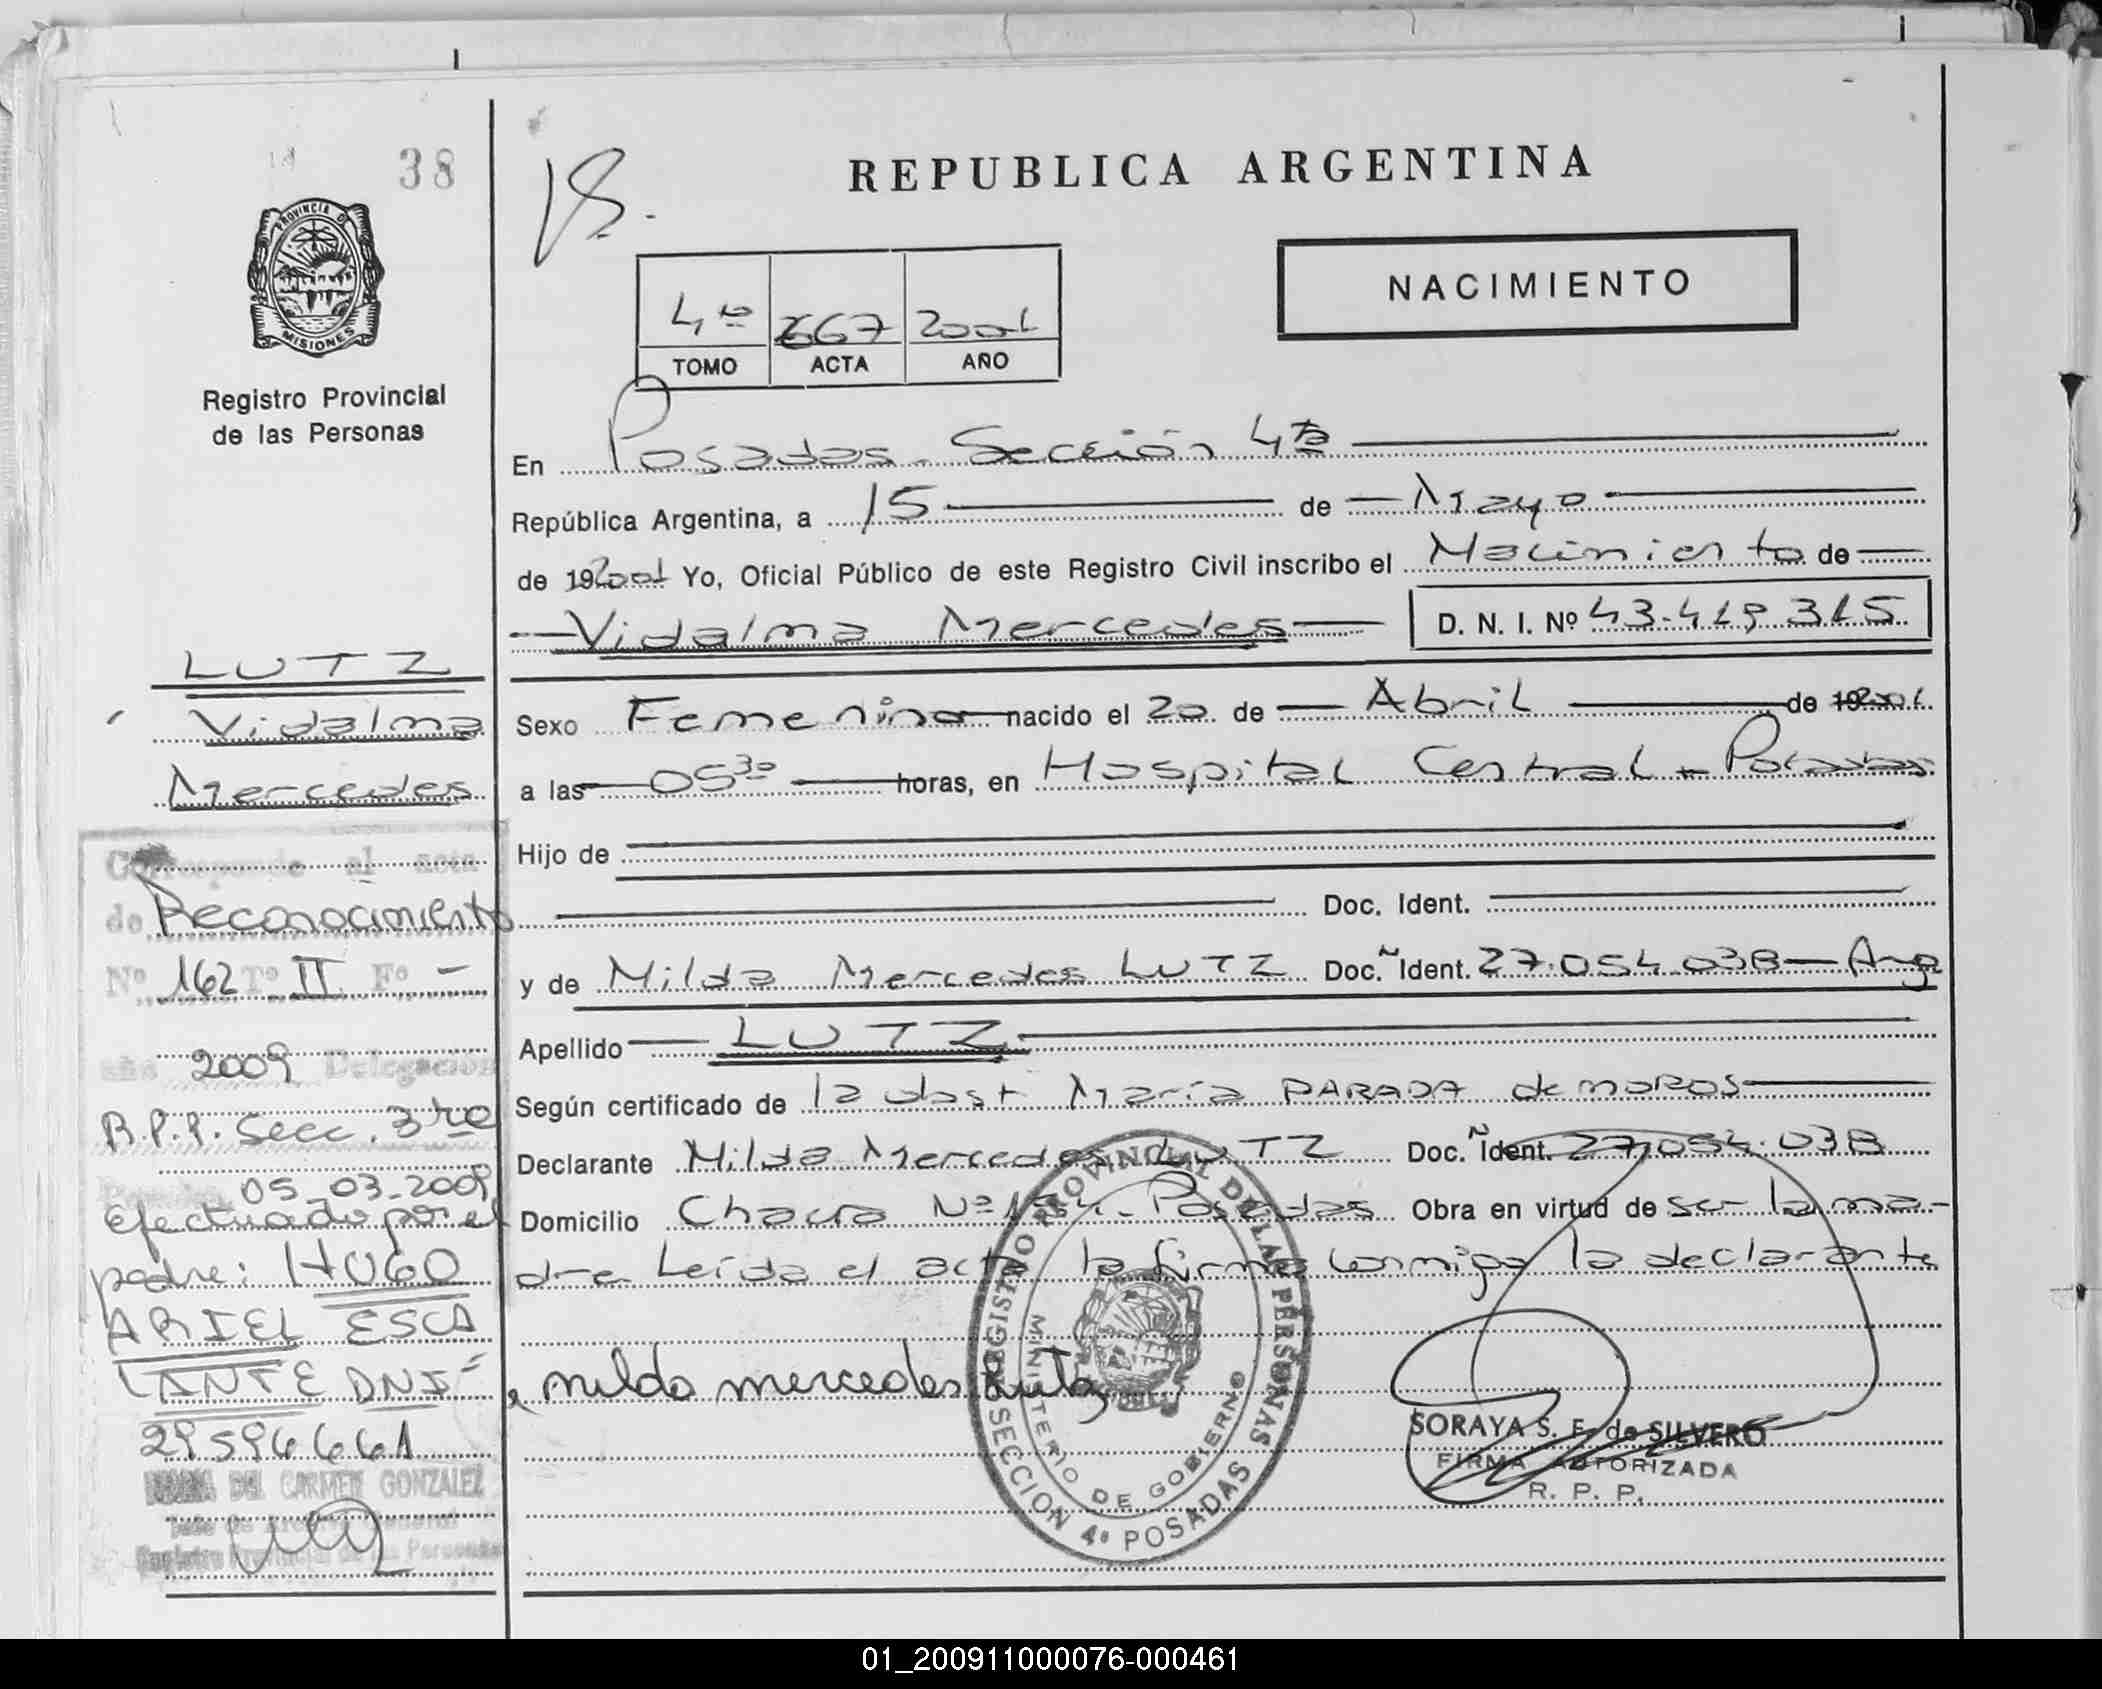 38
18.
REPUBLICA ARGENTINA
NACIMIENTO
4to 667 2001
TOMO ACTA AÑO
PROVINCIA DE
MISIONES
Registro Provincial
de las Personas
En Posadas - Sección 4ta
República Argentina, a 15 de Mayo
de 192001 Yo, Oficial Público de este Registro Civil inscribo el Nacimiento de
Vidalma Mercedes D. N. I. Nº 43.419.315
Sexo Femenino nacido el 20 de Abril de 192001
a las 05 30 horas, en Hospital Central - Posadas
Hijo de
Doc. Ident.
y de Nilda Mercedes LUTZ Doc. Ident. 27.054.038 - Arg
Apellido LUTZ
Según certificado de la obst María PARADA de MOROS
Declarante Nilda Mercedes LUTZ Doc. Ident. 27.054.038
Domicilio Chacra Nº 154 - Posadas Obra en virtud de ser la ma-
dre Leída el acta la firma conmigo la declarante
nilda mercedes Lutz
REGISTRO PROVINCIAL DE LAS PERSONAS
MINISTERIO DE GOBIERNO
SECCION 4ª POSADAS
SORAYA S. F. de SILVERO
FIRMA AUTORIZADA
R. P. P.
LUTZ
Vidalma
Mercedes
Corresponde al acta
de Reconocimiento
Nº 162 Tº II Fº -
año 2009 Delegación
R.P.P. Secc. 3ra
Posadas, 05-03-2009
efectuado por el
padre: HUGO
ARIEL ESCA
LANTE DNI
29596661
DEL CARMEN GONZALEZ
Jefe de Archivo General
Registro Provincial de las Personas
01_200911000076-000461